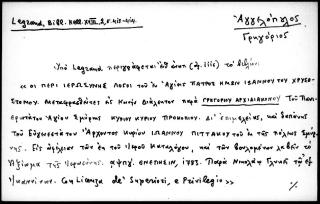 Legrand, Bibl. Hell. XVIII, 2, σ. 413-414.
Ἀγγελόπουλος
Γρηγόριος
Ὑπὸ Legrand περιγράφεται τὸ βιβλίον:
« ΟΙ ΠΕΡΙ ΙΕΡΩΣΥΝΗΣ ΛΟΓΟΙ τοῦ ἐν Ἁγίοις ΠΑΤΡΟΣ ΗΜΩΝ ΙΩΑΝΝΟΥ ΤΟΥ ΧΡΥΣΟ-
ΣΤΟΜΟΥ. Μεταφρασθέντες εἰς Κοινὴν Διάλεκτον παρὰ ΓΡΗΓΟΡΙΟΥ ΑΡΧΙΔΙΑΚΟΝΟΥ Τοῦ Πανι-
ερωτάτου Ἁγίου Σμύρνης ΚΥΡΙΟΥ ΚΥΡΙΟΥ ΠΡΟΚΟΠΙΟΥ. Δι' ἐπιμελείας, καὶ δαπάνης
Τοῦ Εὐγενεστάτου Ἄρχοντος Κυρίου ΙΩΑΝΝΟΥ ΠΙΤΤΑΚΟΥ τοῦ ἐκ τῆς πόλεως Σμύρ-
νης. Εἰς ὠφέλειαν τῶν ἐκ τοῦ Ἱεροῦ Καταλόγου, καὶ τῶν βουλομένων λαβεῖν τὸ
Ἀξίωμα τῆς Ἱερωσύνης. αψπγ. ΕΝΕΤΙΗΣΙΝ, 1783. Παρὰ Νικολάῳ Γλυκεῖ τῷ ἐξ
Ἰωαννίνων. Con Licenza de' Superiori, e Privilegio »